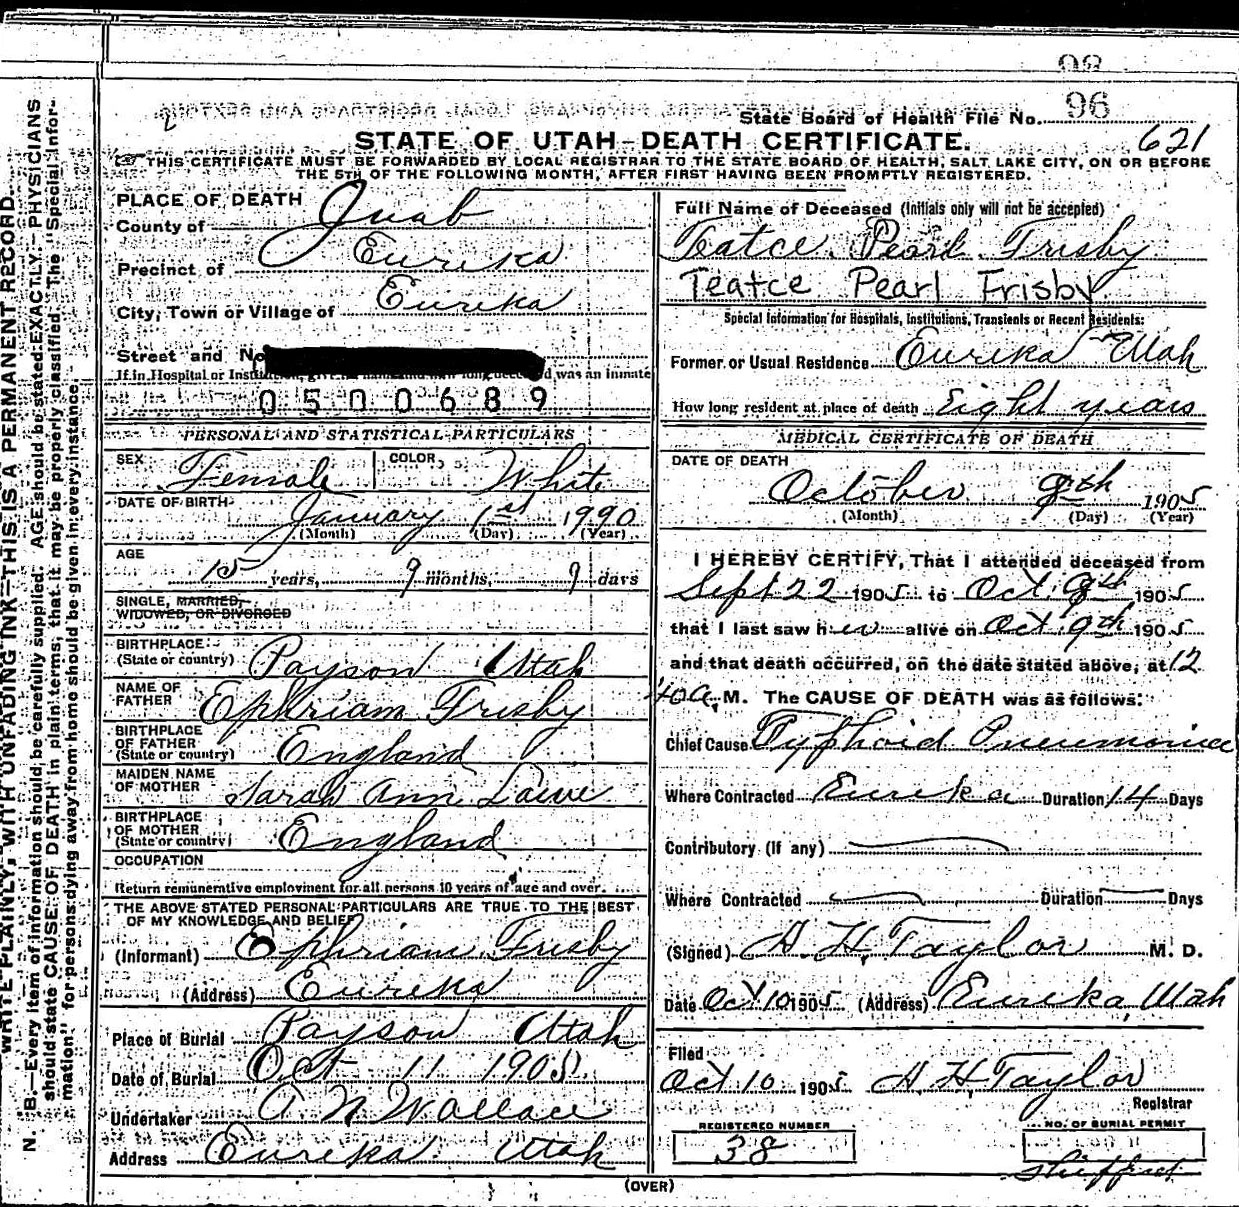 98
State Board of Health File No. 96
621
STATE OF UTAH—DEATH CERTIFICATE.
THIS CERTIFICATE MUST BE FORWARDED BY LOCAL REGISTRAR TO THE STATE BOARD OF HEALTH, SALT LAKE CITY, ON OR BEFORE
THE 5TH OF THE FOLLOWING MONTH, AFTER FIRST HAVING BEEN PROMPTLY REGISTERED.
WRITE PLAINLY, WITH UNFADING INK—THIS IS A PERMANENT RECORD.
N. B.—Every item of information should be carefully supplied. AGE should be stated EXACTLY. PHYSICIANS
should state CAUSE OF DEATH in plain terms, that it may be properly classified. The "Special Infor-
mation" for persons dying away from home should be given in every instance.
PLACE OF DEATH
County of Juab
Precinct of Eureka
City, Town or Village of Eureka
Street and No
If in Hospital or was an inmate
0500689
PERSONAL AND STATISTICAL PARTICULARS
SEX Female COLOR White
DATE OF BIRTH January 1st 1990
(Month) (Day) (Year)
AGE
15 years, 9 months, 9 days
SINGLE, MARRIED,
WIDOWED, OR DIVORCED
BIRTHPLACE
(State or country) Payson Utah
NAME OF
FATHER Ephriam Frisby
BIRTHPLACE
OF FATHER
(State or country) England
MAIDEN NAME
OF MOTHER Sarah Ann
BIRTHPLACE
OF MOTHER
(State or country) England
OCCUPATION
Return remunerative employment for all persons 10 years of age and over.
THE ABOVE STATED PERSONAL PARTICULARS ARE TRUE TO THE BEST
OF MY KNOWLEDGE AND BELIEF
(Informant) Ephriam Frisby
(Address) Eureka
Place of Burial Payson Utah
Date of Burial Oct 11 1905.
Undertaker A N Wallace
Address Eureka Utah
Full Name of Deceased (Initials only will not be accepted)
Teatce Pearl Frisby
Teatce Pearl Frisby
Special Information for Hospitals, Institutions, Transients or Recent Residents:
Former or Usual Residence Eureka Utah
How long resident at place of death Eight years
MEDICAL CERTIFICATE OF DEATH
DATE OF DEATH
October 9th 1905
(Month) (Day) (Year)
I HEREBY CERTIFY, That I attended deceased from
Sept 22 1905 to Oct. 9th 1905
that I last saw her alive on Oct 9th 1905
and that death occurred, on the date stated above, at 12
40 a. M. The CAUSE OF DEATH was as follows:
Chief Cause Typhoid Pneumonia
Where Contracted Eureka Duration 14 Days
Contributory (If any)
Where Contracted Duration Days
(Signed) H. H. Taylor M. D.
Date Oct 10 1905 (Address) Eureka, Utah
Filed
Oct 10 1905 H. H. Taylor
Registrar
REGISTERED NUMBER
38
NO. OF BURIAL PERMIT
(OVER)